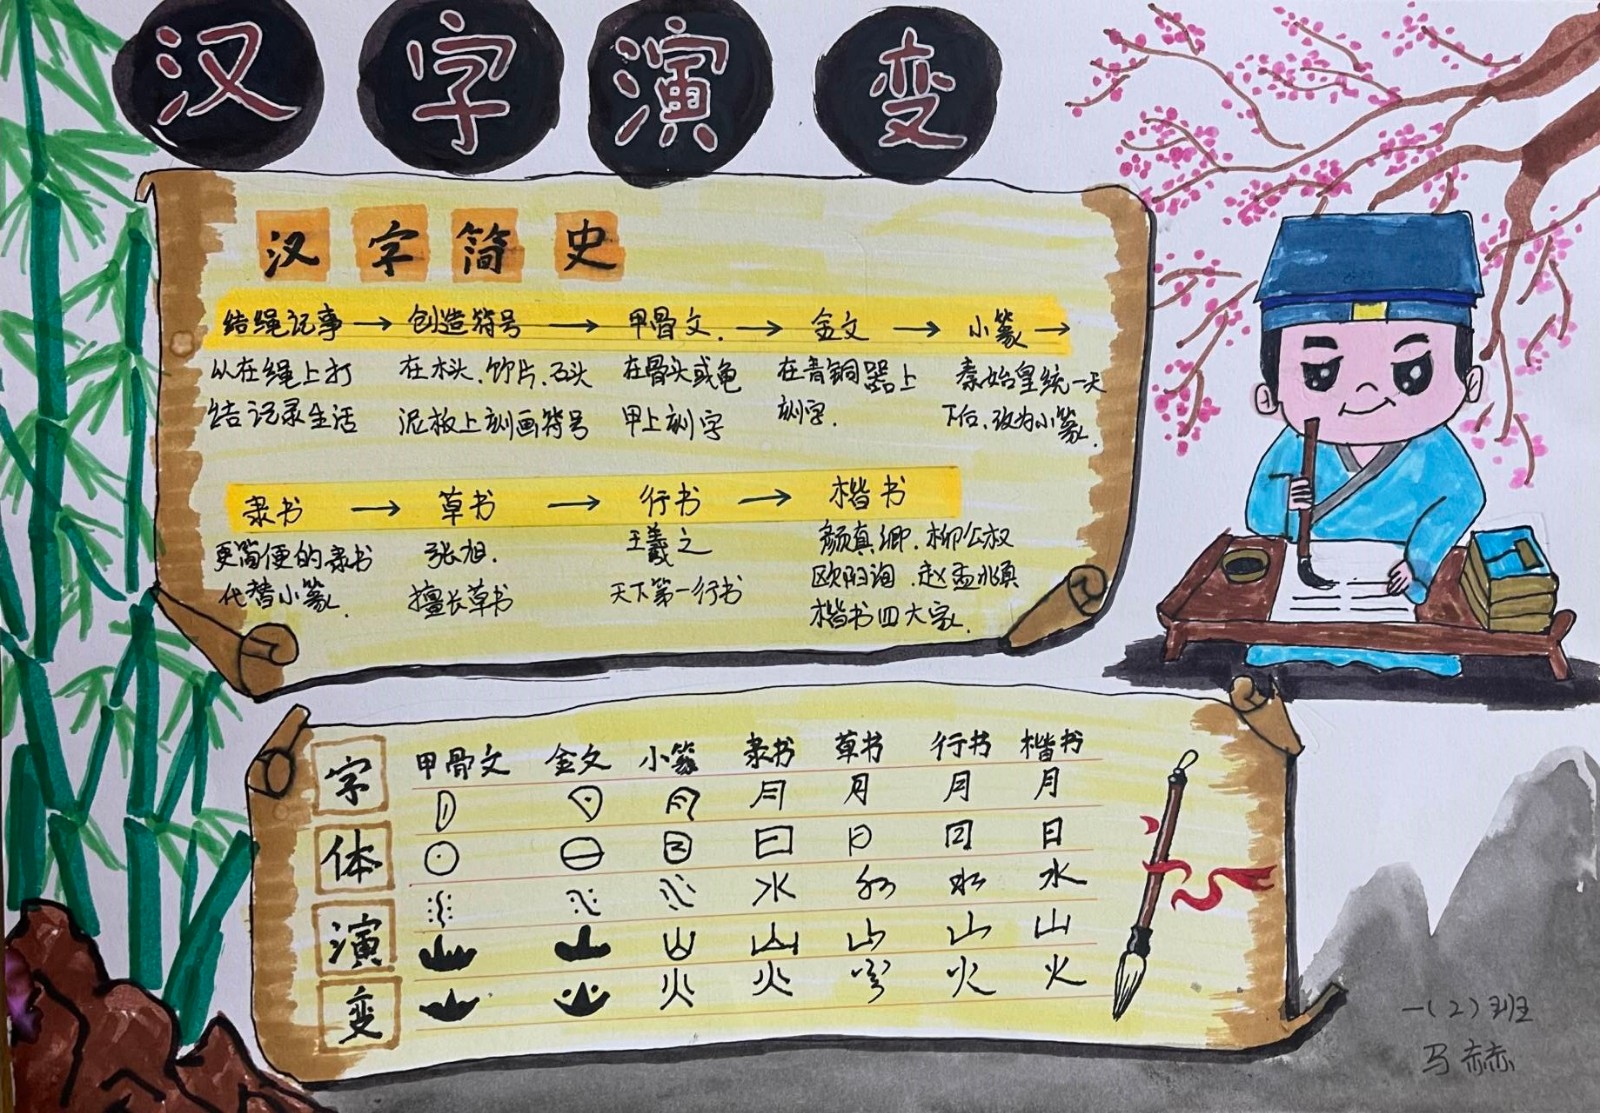 汉字演变
汉字简史
结绳记事→创造符号→甲骨文.→金文→小篆→
从在绳上打 在木头、竹片、石头 在骨头或龟 在青铜器上 秦始皇统一天
结记录生活 泥板上刻画符号 甲上刻字 刻字. 下后、改为小篆.
隶书→草书→行书→楷书
更简便的隶书 张旭. 王羲之 颜真卿、柳公权
代替小篆. 擅长草书 天下第一行书 欧阳询、赵孟頫
楷书四大家.
字体演变
甲骨文 金文 小篆 隶书 草书 行书 楷书
月 月 月 月
日 日 日 日
水 水 水 水
山 山 山 山 山
火 火 火 火
一(2)班
马赫赫